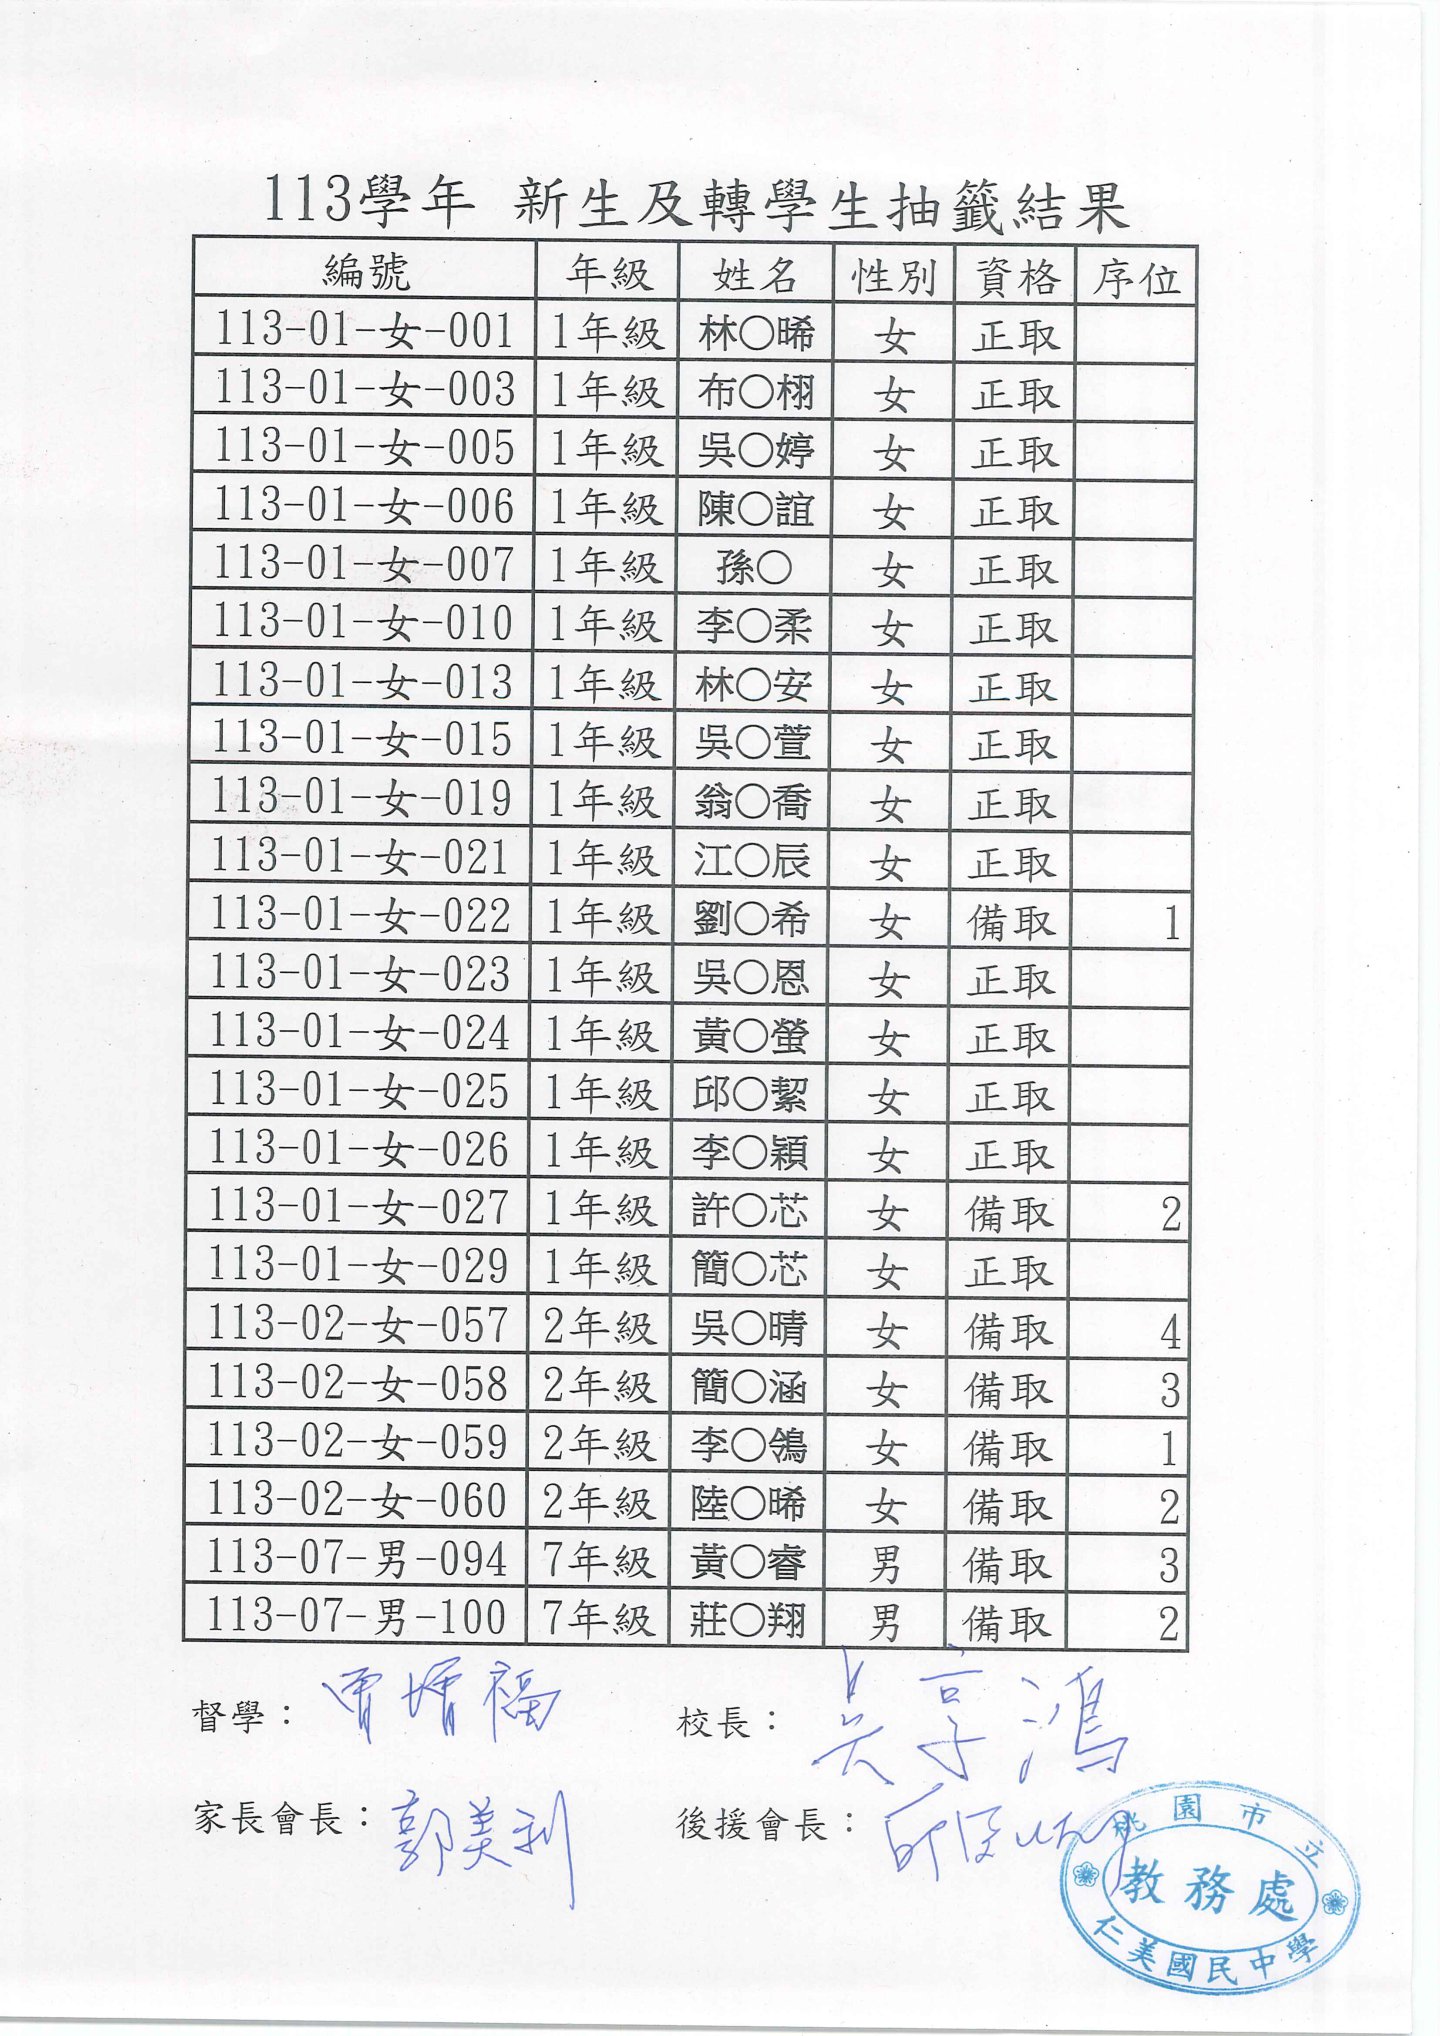 113學年 新生及轉學生抽籤結果
編號 年級 姓名 性別 資格 序位
113-01-女-001 1年級 林○晞 女 正取
113-01-女-003 1年級 布○栩 女 正取
113-01-女-005 1年級 吳○婷 女 正取
113-01-女-006 1年級 陳○誼 女 正取
113-01-女-007 1年級 孫○ 女 正取
113-01-女-010 1年級 李○柔 女 正取
113-01-女-013 1年級 林○安 女 正取
113-01-女-015 1年級 吳○萱 女 正取
113-01-女-019 1年級 翁○喬 女 正取
113-01-女-021 1年級 江○辰 女 正取
113-01-女-022 1年級 劉○希 女 備取 1
113-01-女-023 1年級 吳○恩 女 正取
113-01-女-024 1年級 黃○螢 女 正取
113-01-女-025 1年級 邱○絜 女 正取
113-01-女-026 1年級 李○穎 女 正取
113-01-女-027 1年級 許○芯 女 備取 2
113-01-女-029 1年級 簡○芯 女 正取
113-02-女-057 2年級 吳○晴 女 備取 4
113-02-女-058 2年級 簡○涵 女 備取 3
113-02-女-059 2年級 李○鴒 女 備取 1
113-02-女-060 2年級 陸○晞 女 備取 2
113-07-男-094 7年級 黃○睿 男 備取 3
113-07-男-100 7年級 莊○翔 男 備取 2
督學： 校長：吳享鴻
家長會長：郭美利 後援會長：
桃園市立
教務處
仁美國民中學